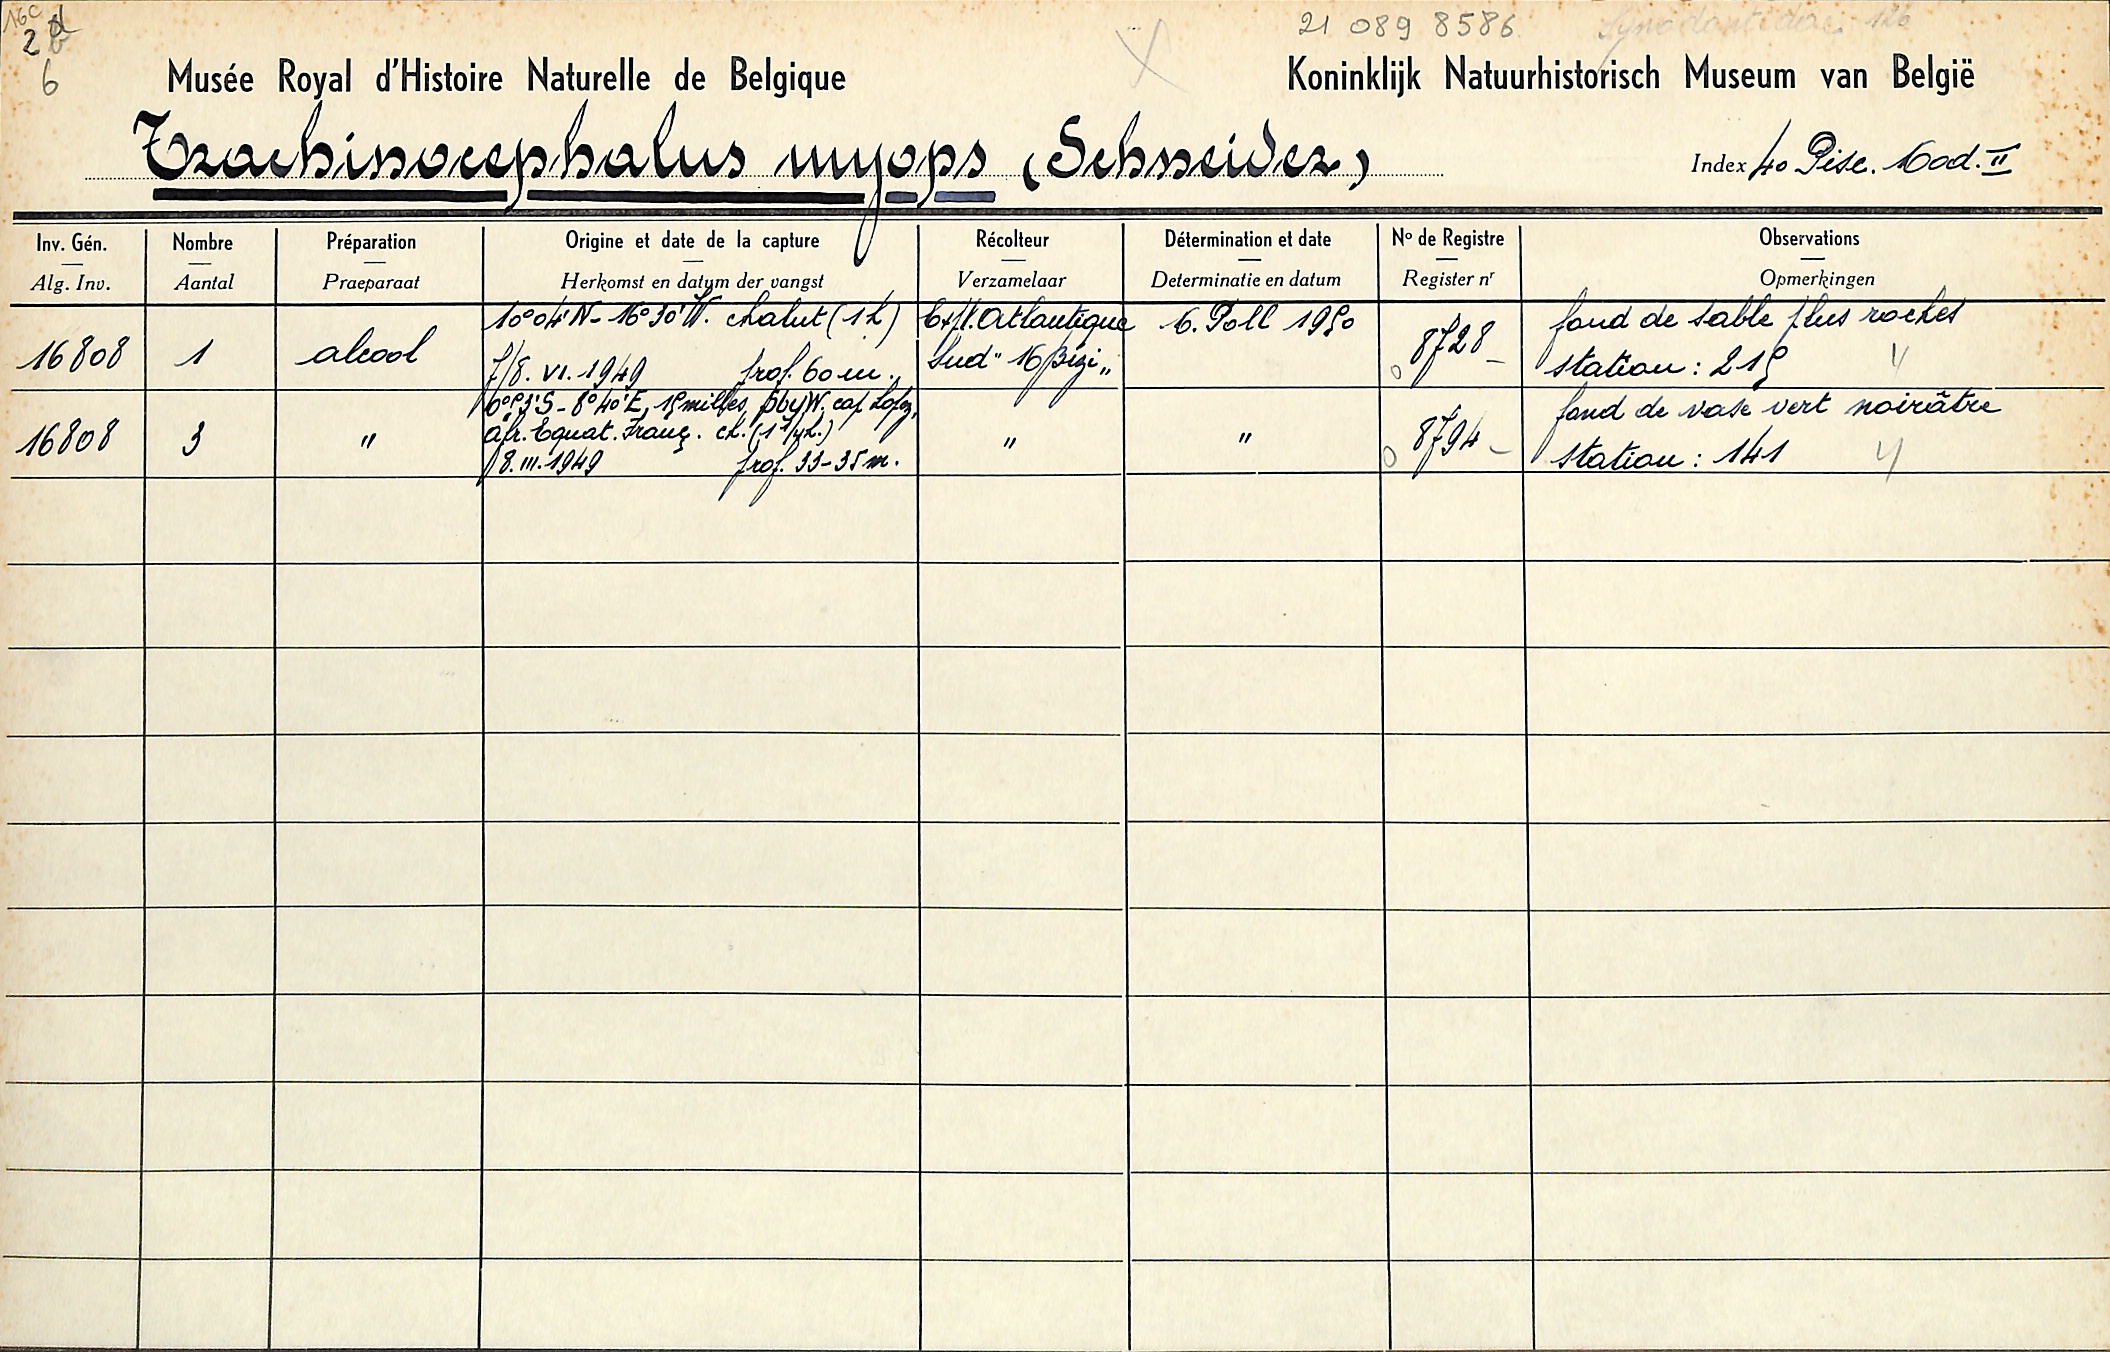 16C
2
6
21 089 8586
Synodontidae 126
Musée Royal d'Histoire Naturelle de Belgique
Koninklijk Natuurhistorisch Museum van België
Trachinocephalus myops (Schneider)
Index 40 Pisc. Mod. II
Inv. Gén. Nombre Préparation Origine et date de la capture Récolteur Détermination et date No de Registre Observations
Alg. Inv. Aantal Praeparaat Herkomst en datum der vangst Verzamelaar Determinatie en datum Register nr Opmerkingen
10°04'N - 16°30'W. chalut (1 h)
7/8. VI. 1949 prof. 60 m.
16808 1 alcool
Exp. Atlantique
Sud" M Bizi"
M. Poll 1950
8728 -
fond de sable plus roches
station: 215
16808 3 "
Afr. Equat. Franç. ch.
8. III. 1949 prof. 33-35 m.
" "
8794 -
fond de vase vert noirâtre
station: 141